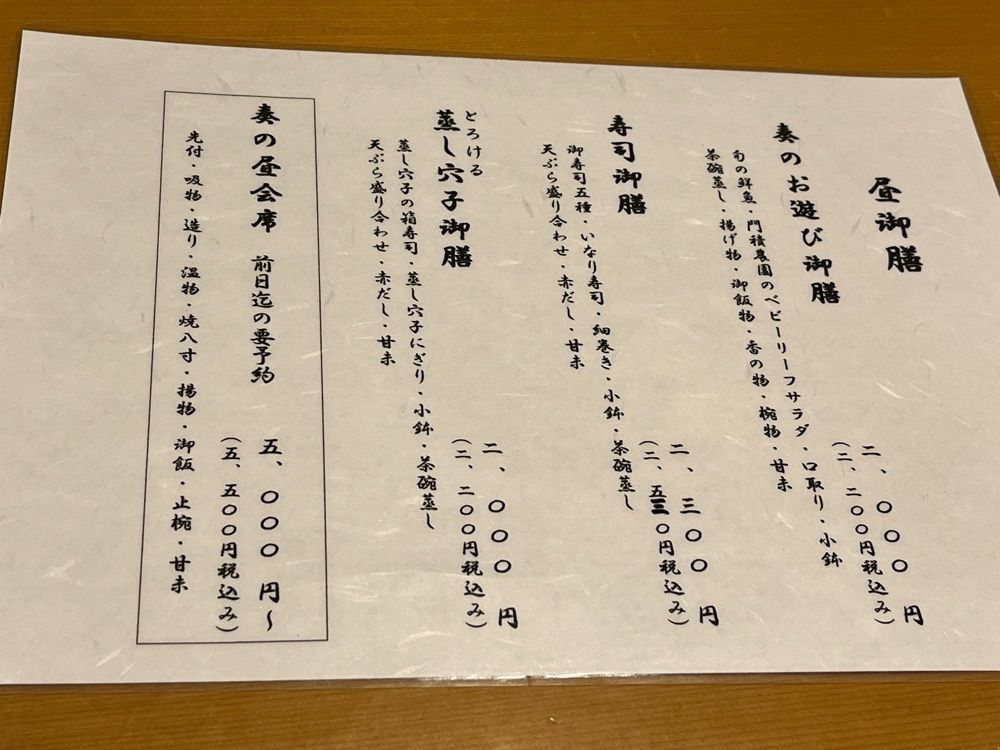 昼御膳
奏のお遊び御膳
二、〇〇〇円
(二、二〇〇円税込み)
旬の鮮魚・門積農園のベビーリーフサラダ・口取り・小鉢
茶碗蒸し・揚げ物・御飯物・香の物・椀物・甘未
寿司御膳
二、三〇〇円
(二、五三〇円税込み)
御寿司五種・いなり寿司・細巻き・小鉢・茶碗蒸し
天ぷら盛り合わせ・赤だし・甘未
とろける
蒸し穴子御膳
二、〇〇〇円
(二、二〇〇円税込み)
蒸し穴子の箱寿司・蒸し穴子にぎり・小鉢・茶碗蒸し
天ぷら盛り合わせ・赤だし・甘未
奏の昼会席 前日迄の要予約
五、〇〇〇円~
(五、五〇〇円税込み)
先付・吸物・造り・温物・焼八寸・揚物・御飯・止椀・甘未